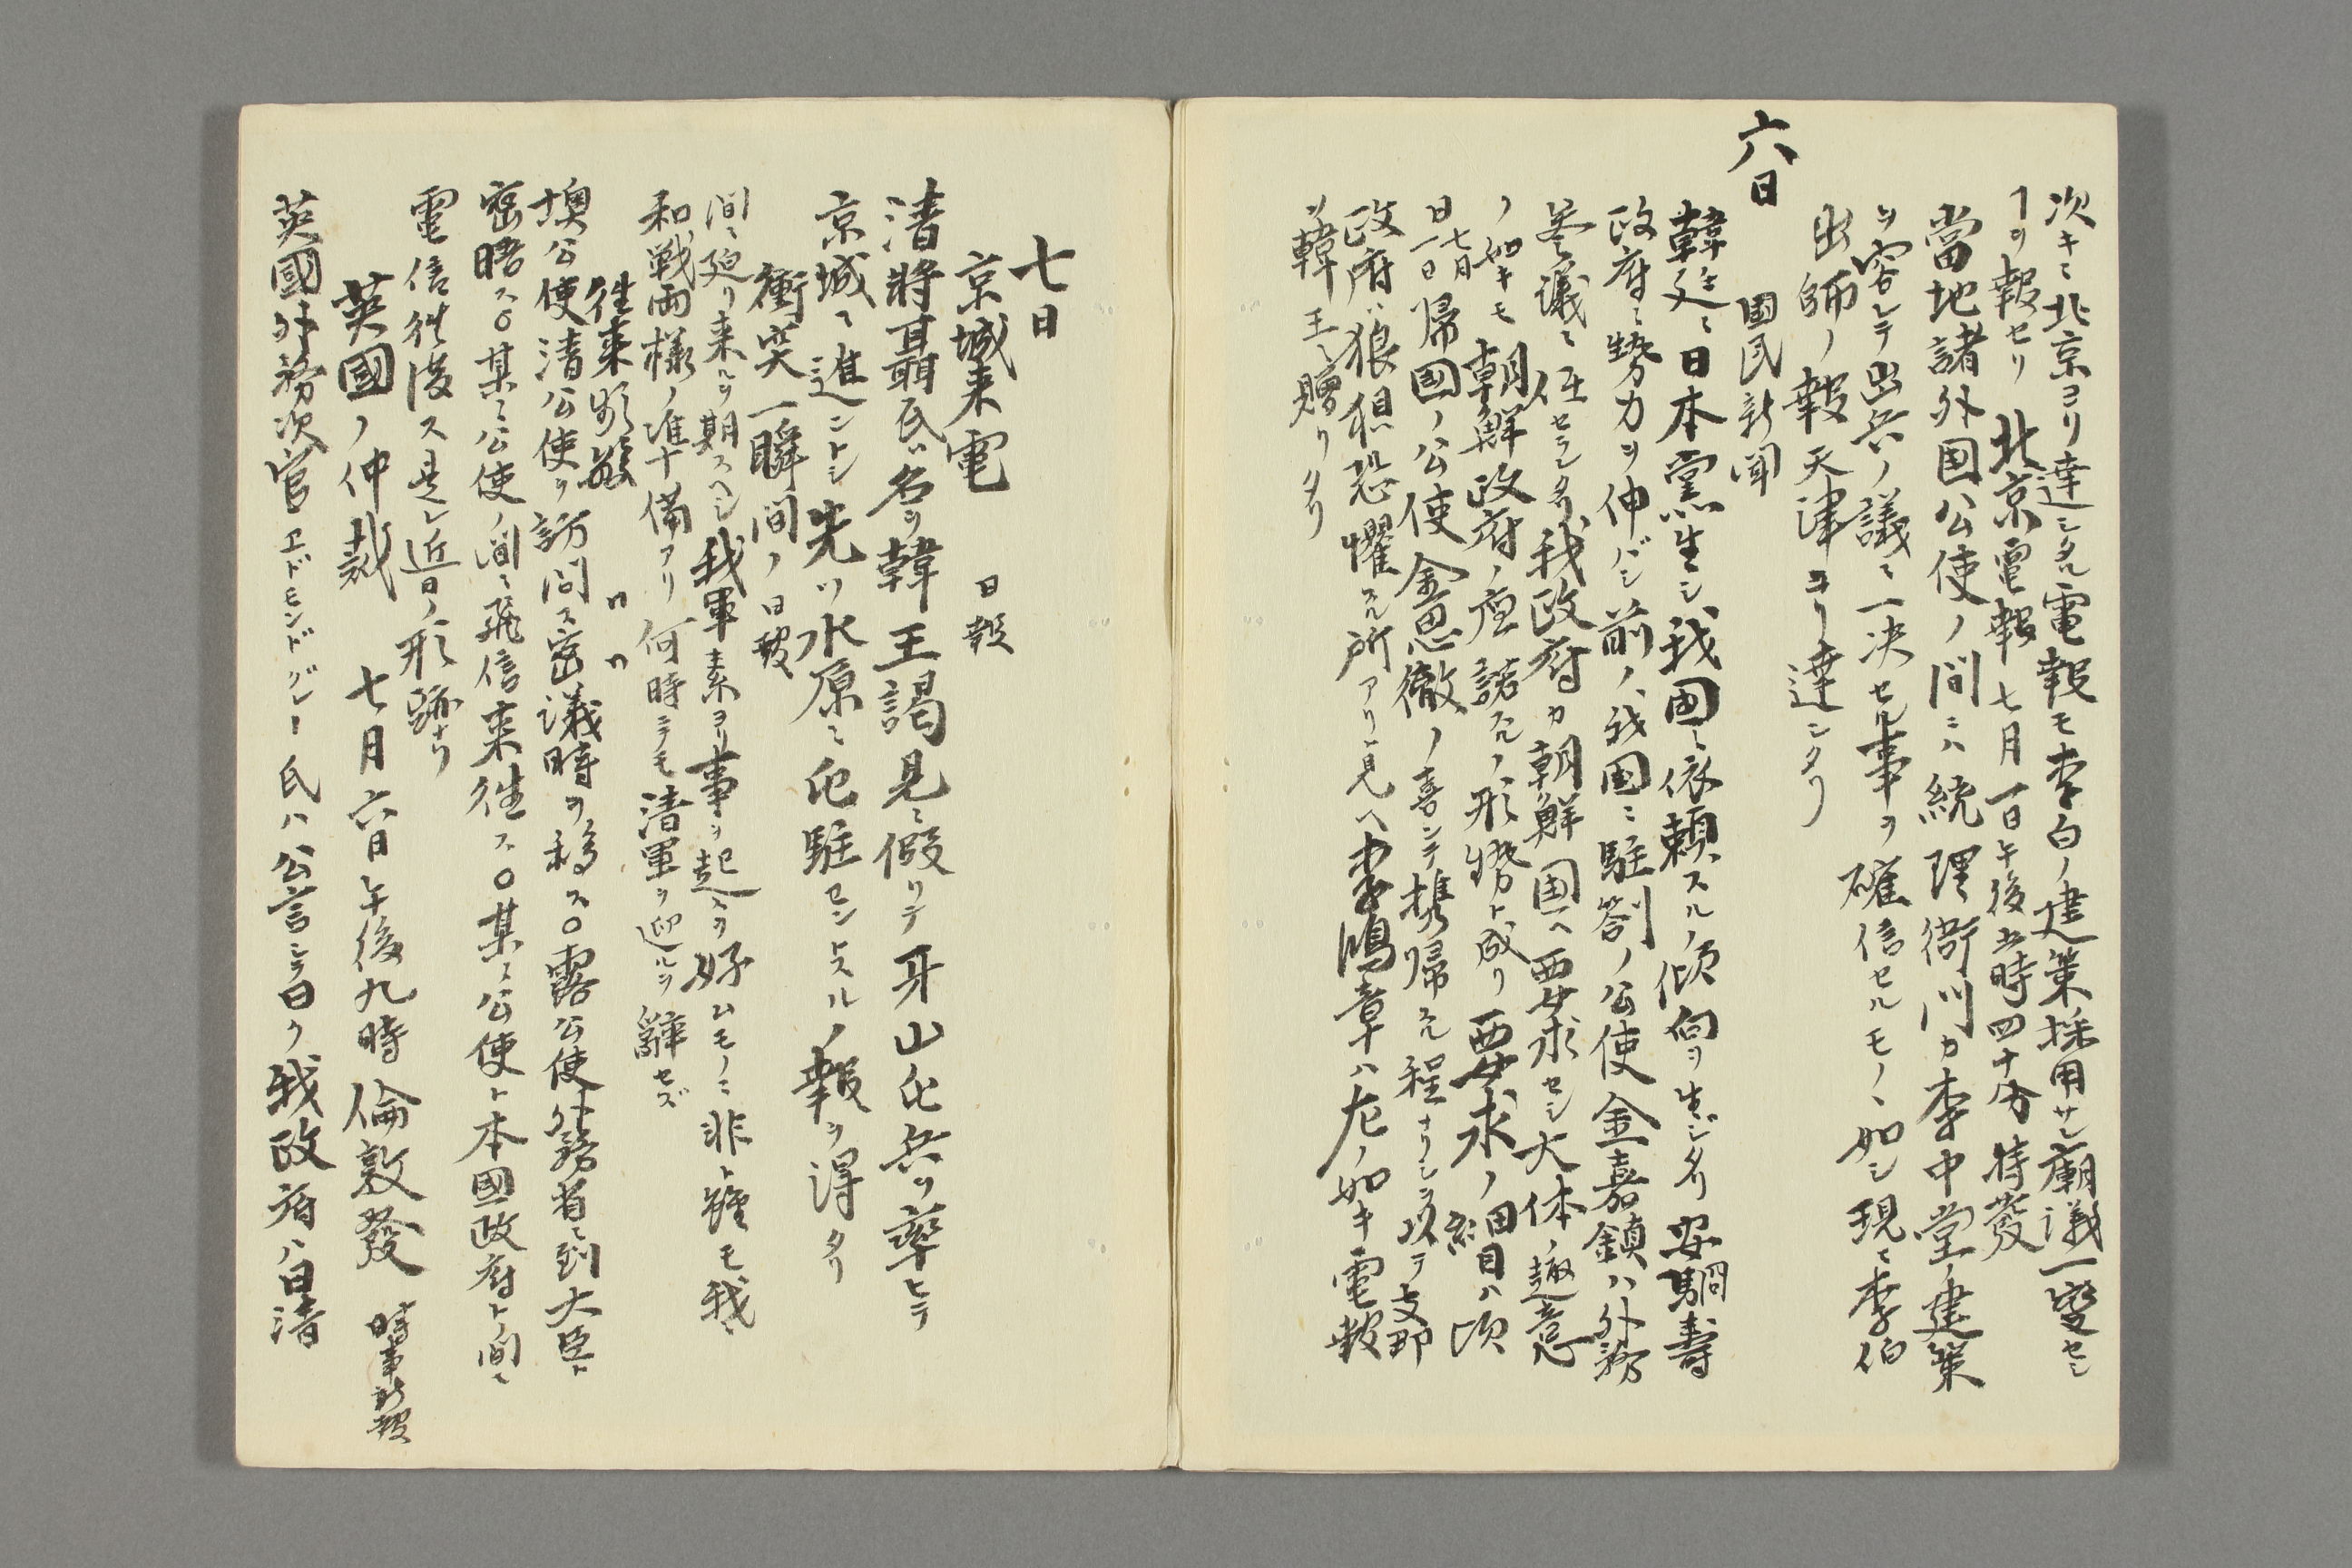 次キニ北京ヨリ達シタル電報モ李白ノ建策採用サレ廟議一変セシ
ヿヲ報セリ 北京電報 七月一日午後五時四十分特發
當地諸外国公使ノ間ニハ統理衙門カ李中堂ノ建策
ヲ容レテ出兵ノ議ニ一决セル事ヲ確信セルモノヽ如シ現ニ李伯
出師ノ報天津ヨリ達シタリ
六日
國民新聞
韓廷ニ日本党生シ我国ニ依頼スルノ傾向ヲ生ジタリ安駉壽
政府ニ勢力ヲ伸バシ前ノ我国ニ駐劄ノ公使金嘉鎮ハ外務
参議ニ任セラレタリ我政府カ朝鮮国ヘ要求セシ大体ノ趣意
ノ如キモ朝鮮政府ノ応諾スルノ形勢ト成リ要求ノ細目ハ頃
日七月一日帰国ノ公使金思徹ノ喜ンテ携帰スル程ナリシヲ以テ支那
政府ハ狼狽恐懼スル所アリト見ヘ李鴻章ハ左ノ如キ電報
ヲ韓王ニ贈リタリ
七日
京城来電 日報
清將聶氏ハ名ヲ韓王謁見ニ假リテ牙山屯兵ヲ率ヒテ
京城ニ進ントシ先ツ水原ニ屯駐セントスルノ報ヲ得タリ
衝突一瞬間ノ 日報
間ニ廻リ来ルヲ期スヘシ我軍素ヨリ事ヲ起スヲ好ムモノニ非ト雖モ我ハ
和戦両様ノ準十備アリ何時ニテモ清軍ヲ迎ルヲ辞セズ
往来頻繁 〃〃
墺公使清公使ヲ訪問ス密議時ヲ移ス○露公使外務省ニ到大臣ト
密晤ス○某ニ公使ノ間ニ飛信来往ス○某ニ公使ト本國政府ト間ニ
電信往復ス是レ近日ノ形跡ナリ
英國ノ仲裁 七月六日午後九時倫敦發 時事新報
英國外務次官エドモンドグレー氏ハ公言シテ曰ク我政府ハ日清